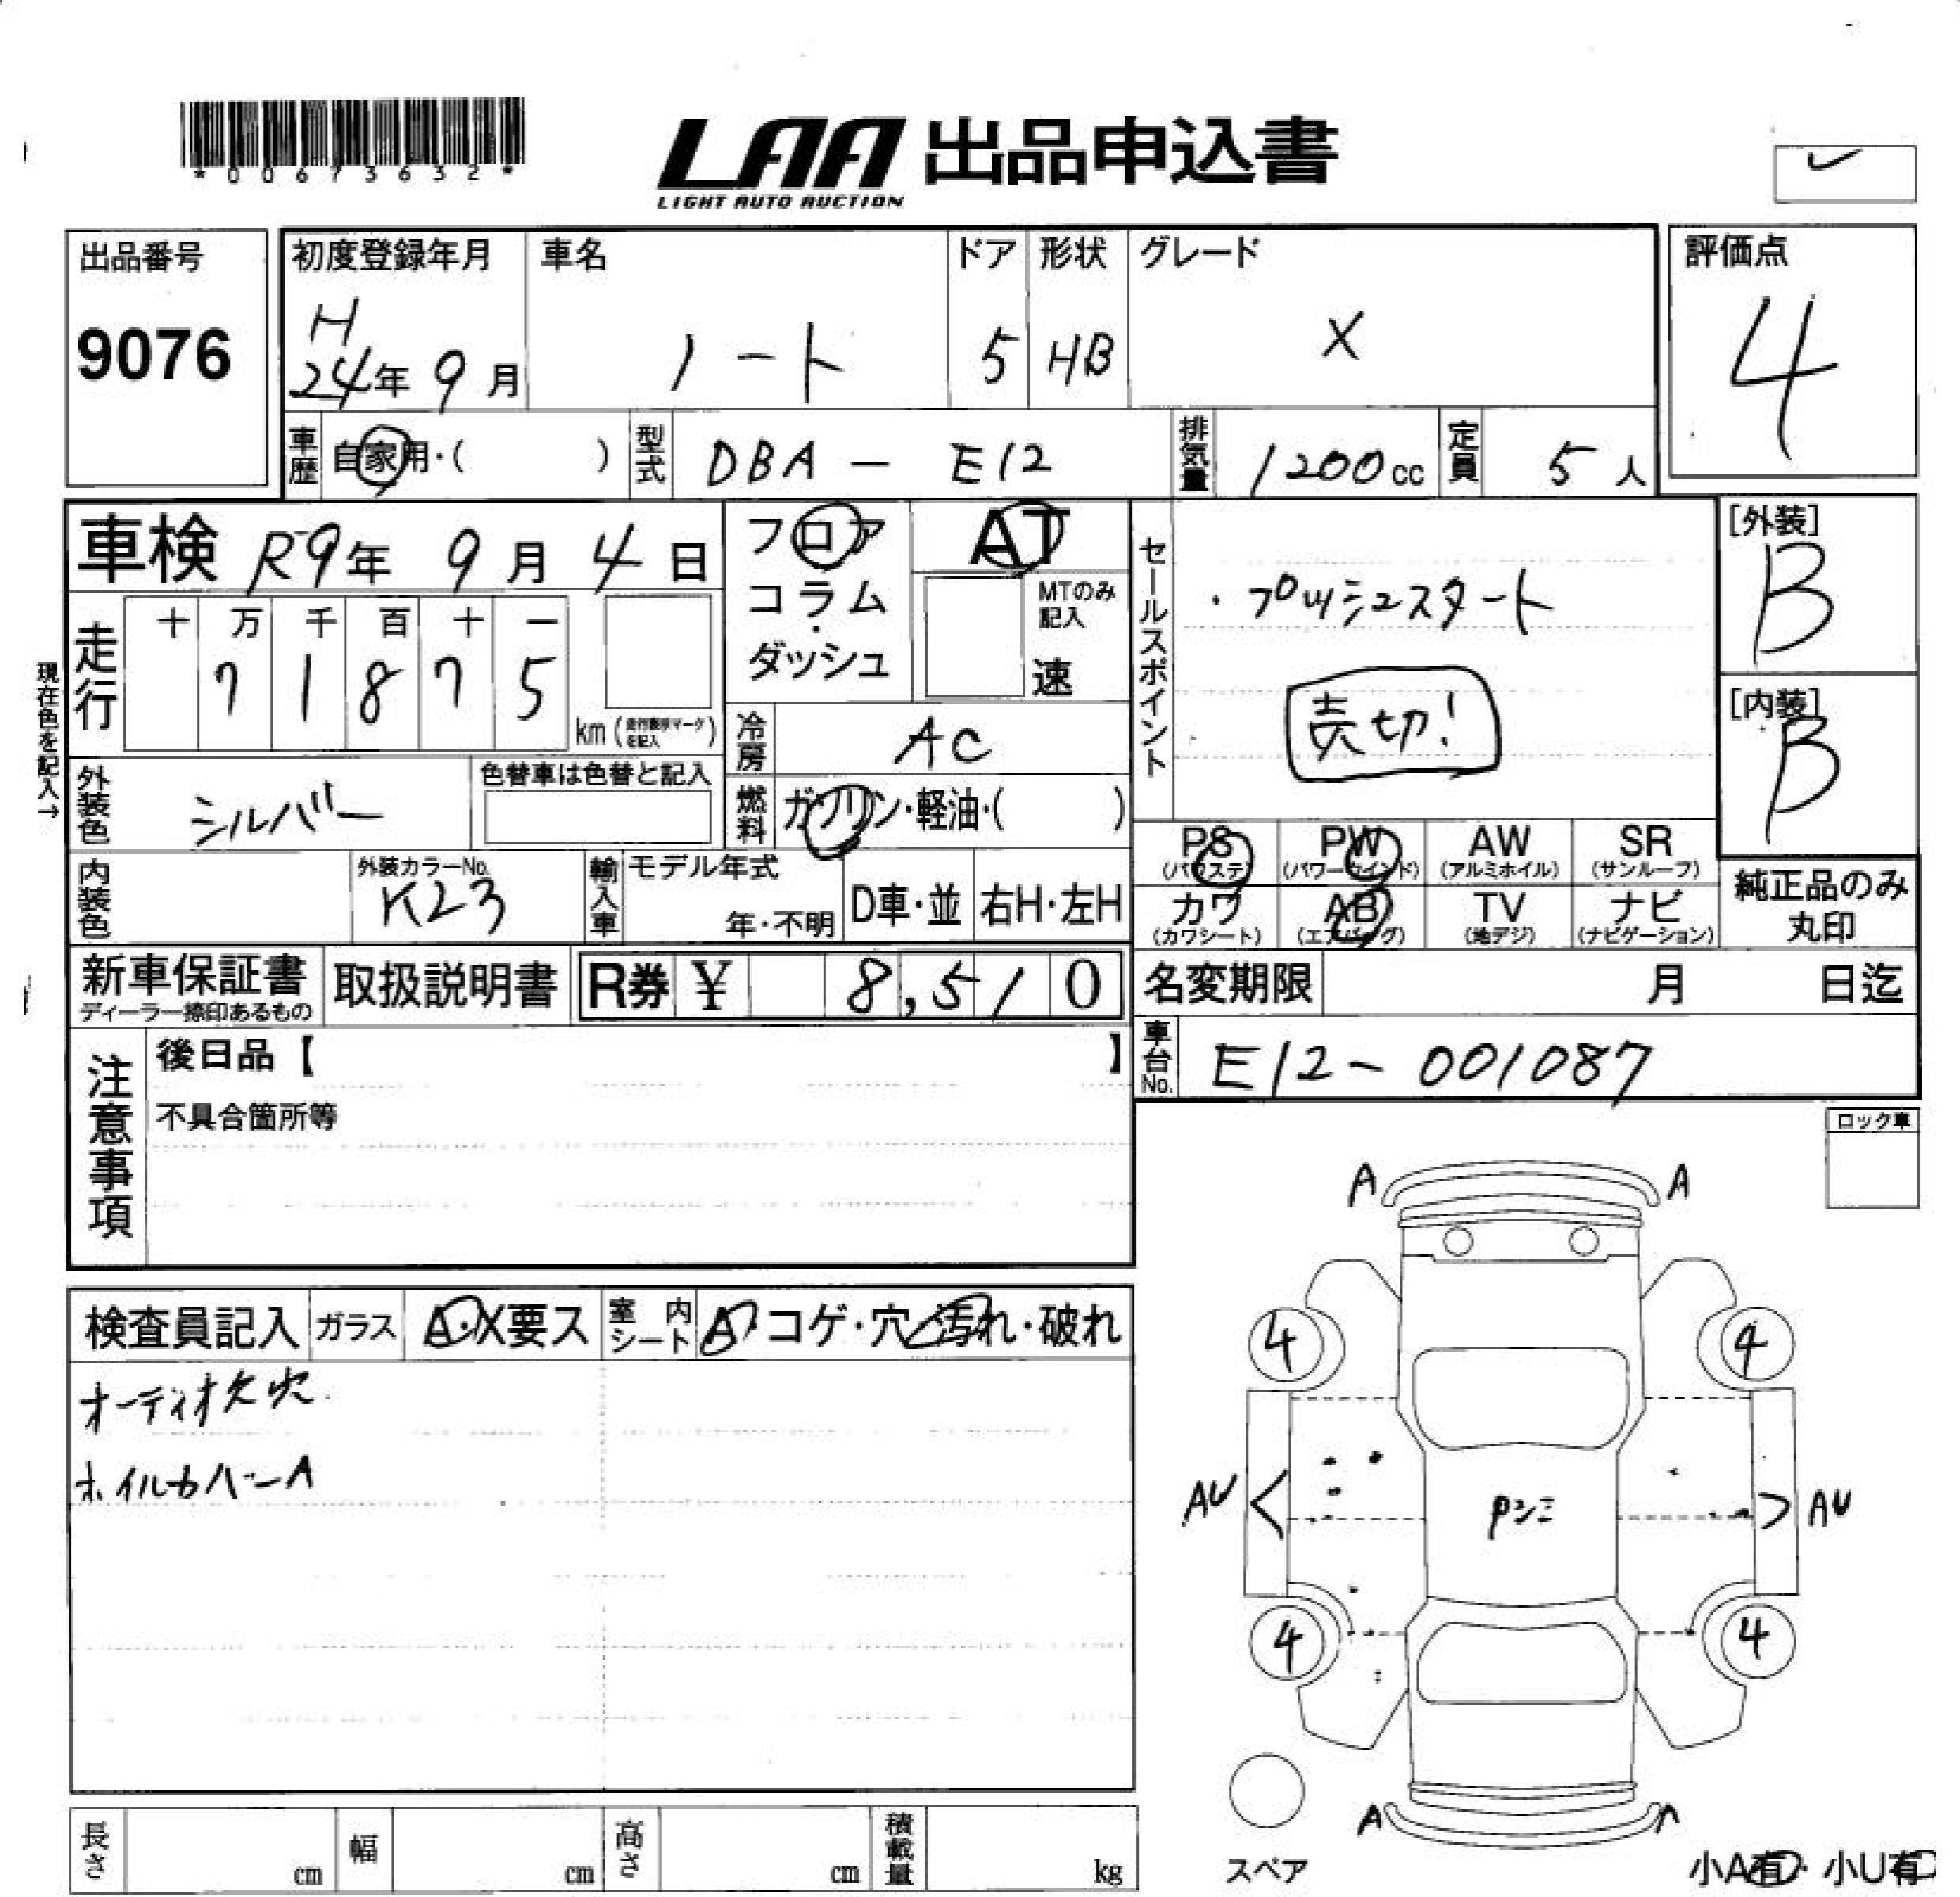 *00673632*
LAA 出品申込書
LIGHT AUTO AUCTION
出品番号
9076
初度登録年月
H
24年 9月
車名
ノート
ドア
5
形状
HB
グレード
X
評価点
4
車歴 自家用・( )
型式 DBA - E12
排気量 1200cc
定員 5人
車検 R9年 9月 4日
フロア
コラム
・
ダッシュ
AT
MTのみ記入
速
セールスポイント
・プッシュスタート
売切!
[外装]
B
[内装]
B
現在色を記入→
走行 十 万 千 百 十 一
7 1 8 7 5
km(走行表示マークを記入)
冷房 AC
外装色 シルバー
色替車は色替と記入
燃料 ガソリン・軽油・( )
PS (パワステ)
PW (パワーウインド)
AW (アルミホイル)
SR (サンルーフ)
カワ (カワシート)
AB (エアバッグ)
TV (地デジ)
ナビ (ナビゲーション)
純正品のみ
丸印
内装色
外装カラーNo.
K23
輸入車
モデル年式
年・不明
D車・並
右H・左H
新車保証書
ディーラー捺印あるもの
取扱説明書
R券 ¥ 8,510
名変期限 月 日迄
車台No. E12-001087
注意事項
後日品【 】
不具合箇所等
ロック車
検査員記入
ガラス A・X要ス
室内シート A・コゲ・穴・汚れ・破れ
オーディオ欠品
ホイルカバーA
A A
4 4
AU AU
Pシミ
4 4
A A
スペア
小A有・小U有
長さ cm
幅 cm
高さ cm
積載量 kg